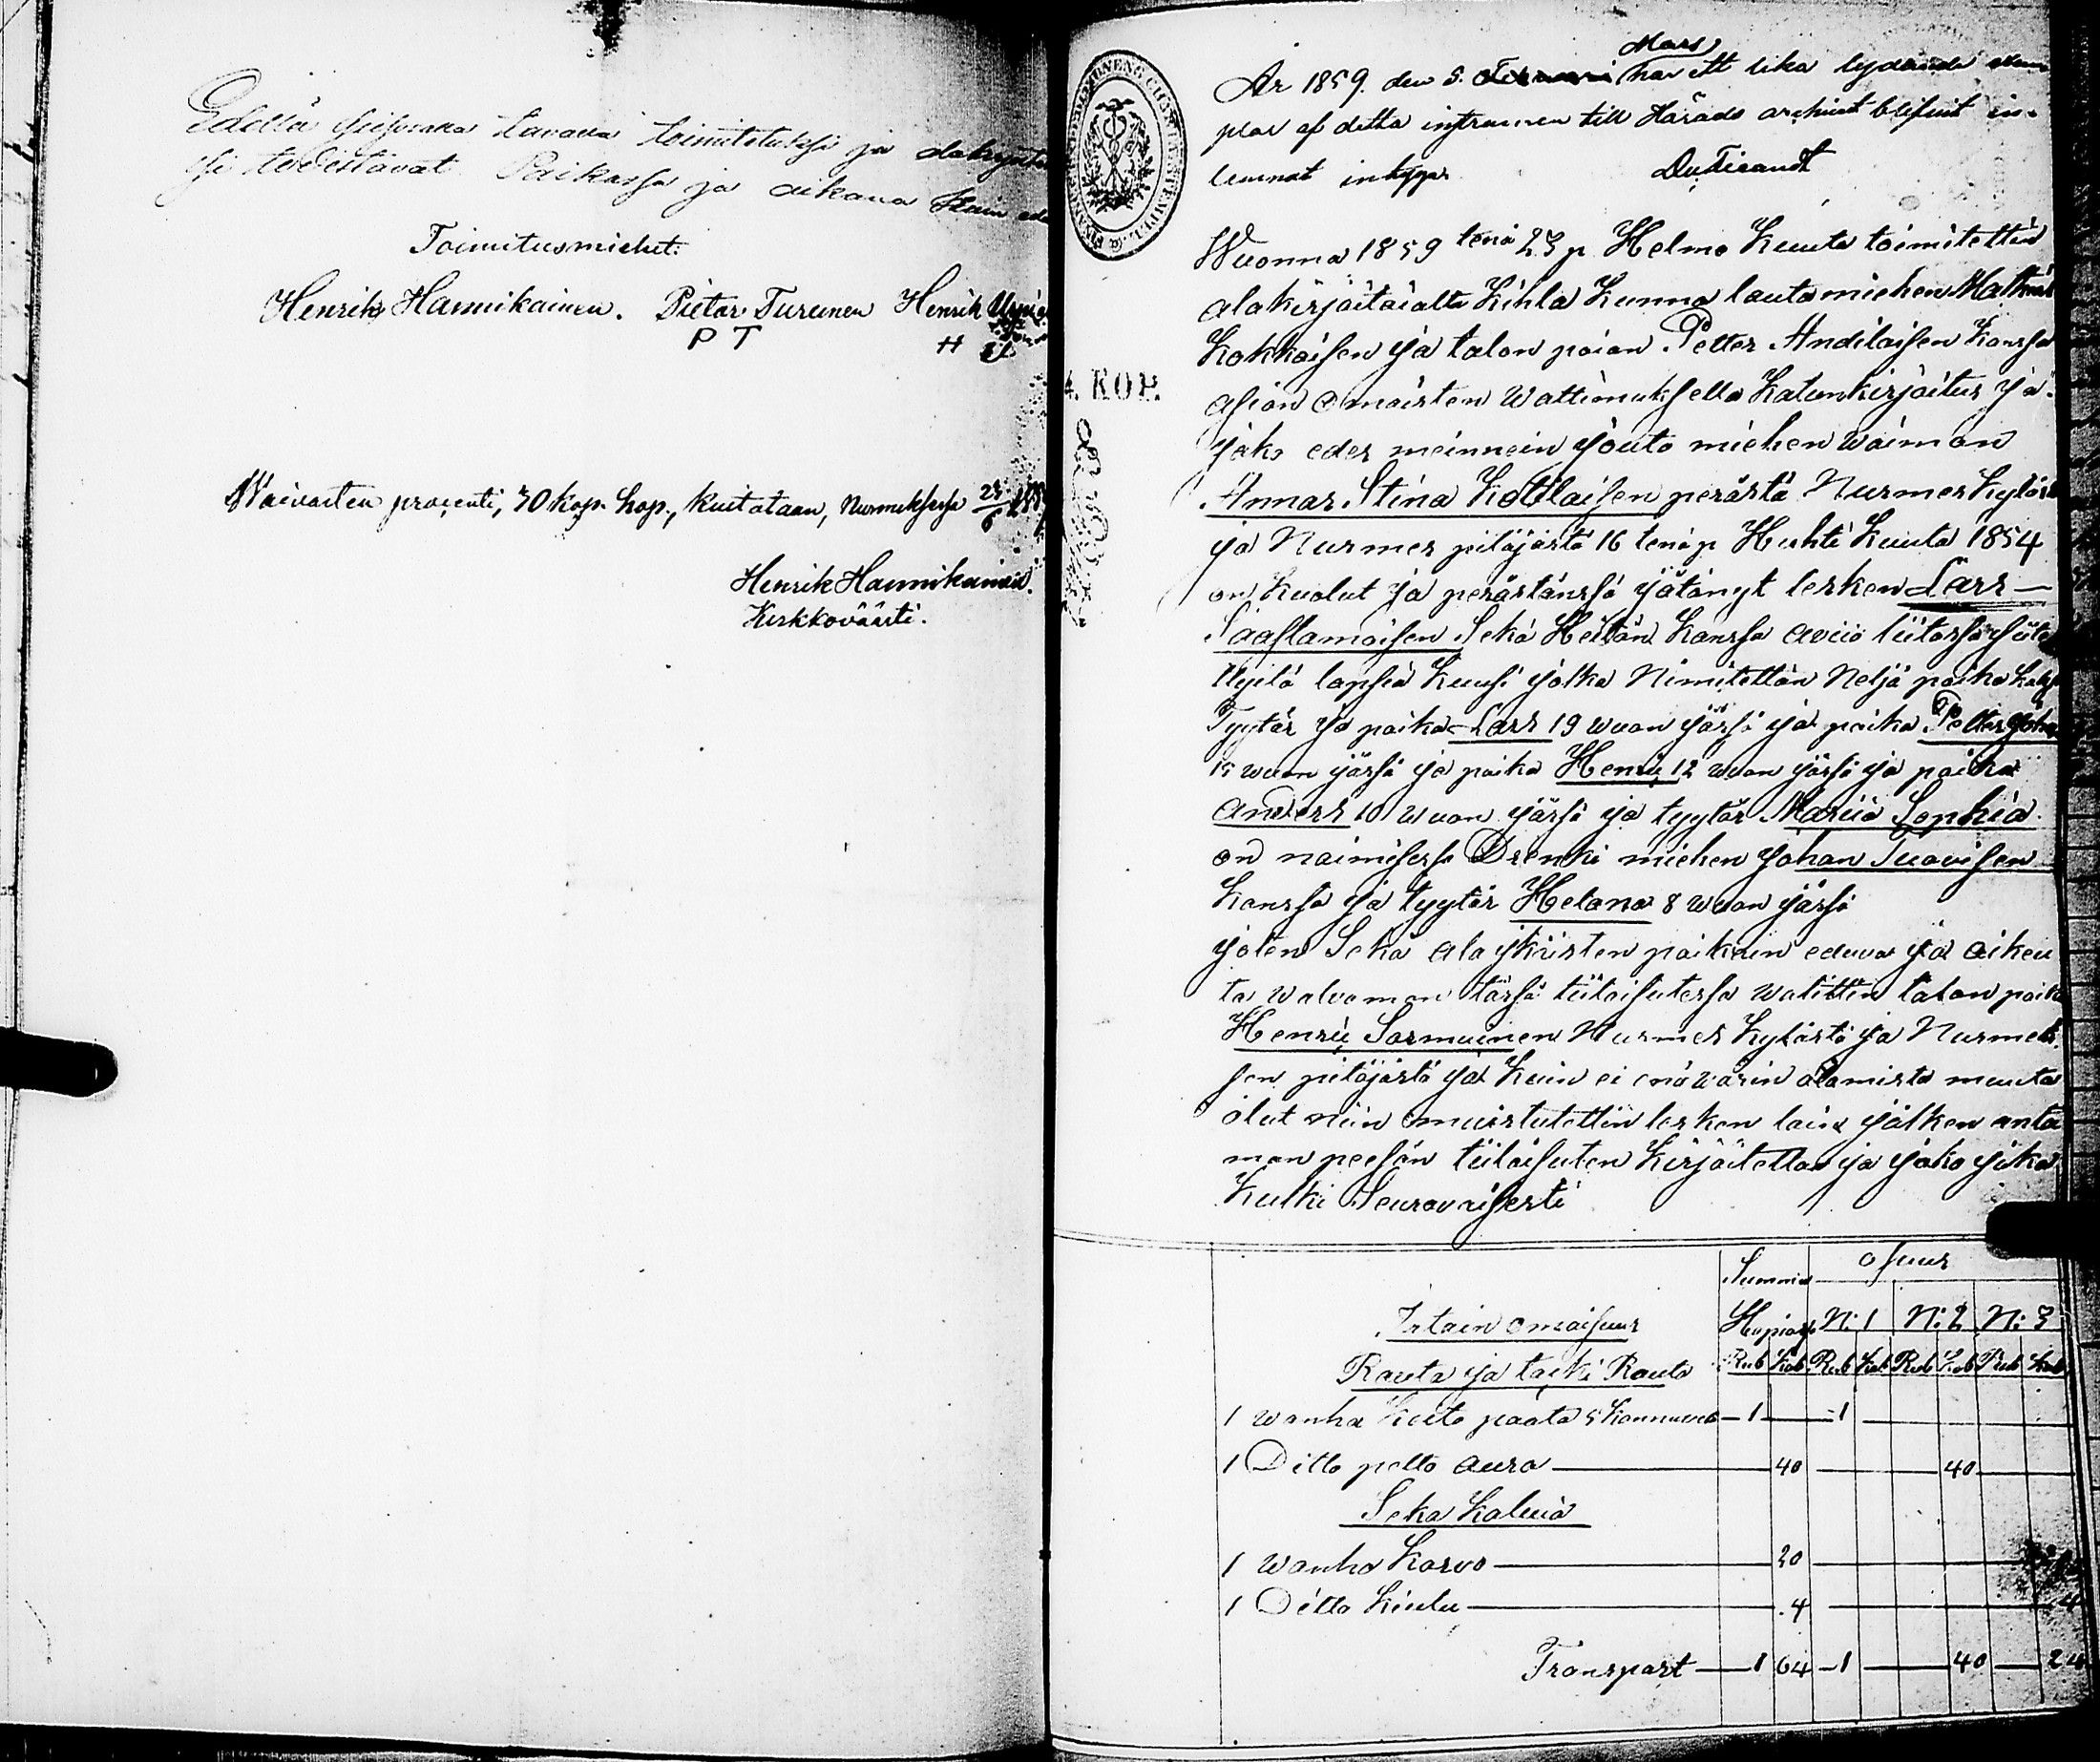 Edellä seisovalla tavalla toimitetuksi ja
si todistavat Paikassa ja aikana kuin
Toimitusmiehet:
Henrik Hannikainen. Pietar Turunen Henrik
P T H
Waivasten procenti, 30 kop. hop., kuitataan, Nurmeksessa
Henrik Hannikainen.
Kirkkoväärti.
Mars
År 1859. den 5. har ett lika lydande
plar af detta instrumen till Härads archivet blifvit in-
lemnat intygar
4. KOP.
Wuonna 1859 tenä 23 p Helmo Kuuta toimitettin
alakirjoitaialta Kihla Kunna lautamiehen
Kokkoisen ja talon poian Petter Andilaisen Kanssa
asian omaisten Wattimuksella Kalunkirjoitus ja
jako edes meinnein jouto miehen waiman
Annar Stina Kottlaisen perästä Nurmes Kylästä
ja Nurmes pitäjästä 16 tenä p Huhti Kuuta 1854
on Kuolut ja perästänsä jätänyt lesken Lars
Saastamoisen Sekä Heitän Kanssa aviio liitossa
lapsia Kuusi jotka Nimitettän Neljä poika
Tyytär ja poika Lars 19 wuan jässä ja poika Petter Johan
15 wuan jässä ja poika Henric 12 wuan jässä ja poika
Anders 10 wuan jässä ja tyytär Mariia Sophia
on naimisessa Drenki miehen Johan Tuovisen
Kanssa ja tyytär Helana 8 wuan jässä
joten Sekä ala ikäisten poikain eduva ja oikeu
ta walvoman tässä tilaisutessa watittin talon poika
Henric Sormuinen Nurmes Kylästä ja Nurmek
sen pitäjästä ja Kuin ei enäwäin olamista muuta
olut niin muistutettin lesken lain jälken anta
man pesän tilaisuten Kirjoitettav ja jako joka
Kulki Seuravaisesti
Summa osuus
Irtain omaisuus N: 1 N: 2 N: 3
Rauta ja taiki Rauta Rub Kob Rub Kob Rub Kob Rub Kob
1 wanha Keito paata 5 Kannuna 1 1
1 Ditto pelto aura 40 40
Seka Kaluia
1 wanha Korvo 20
1 Ditto Kiulu 4 4
Transpart 1 64 1 40 24